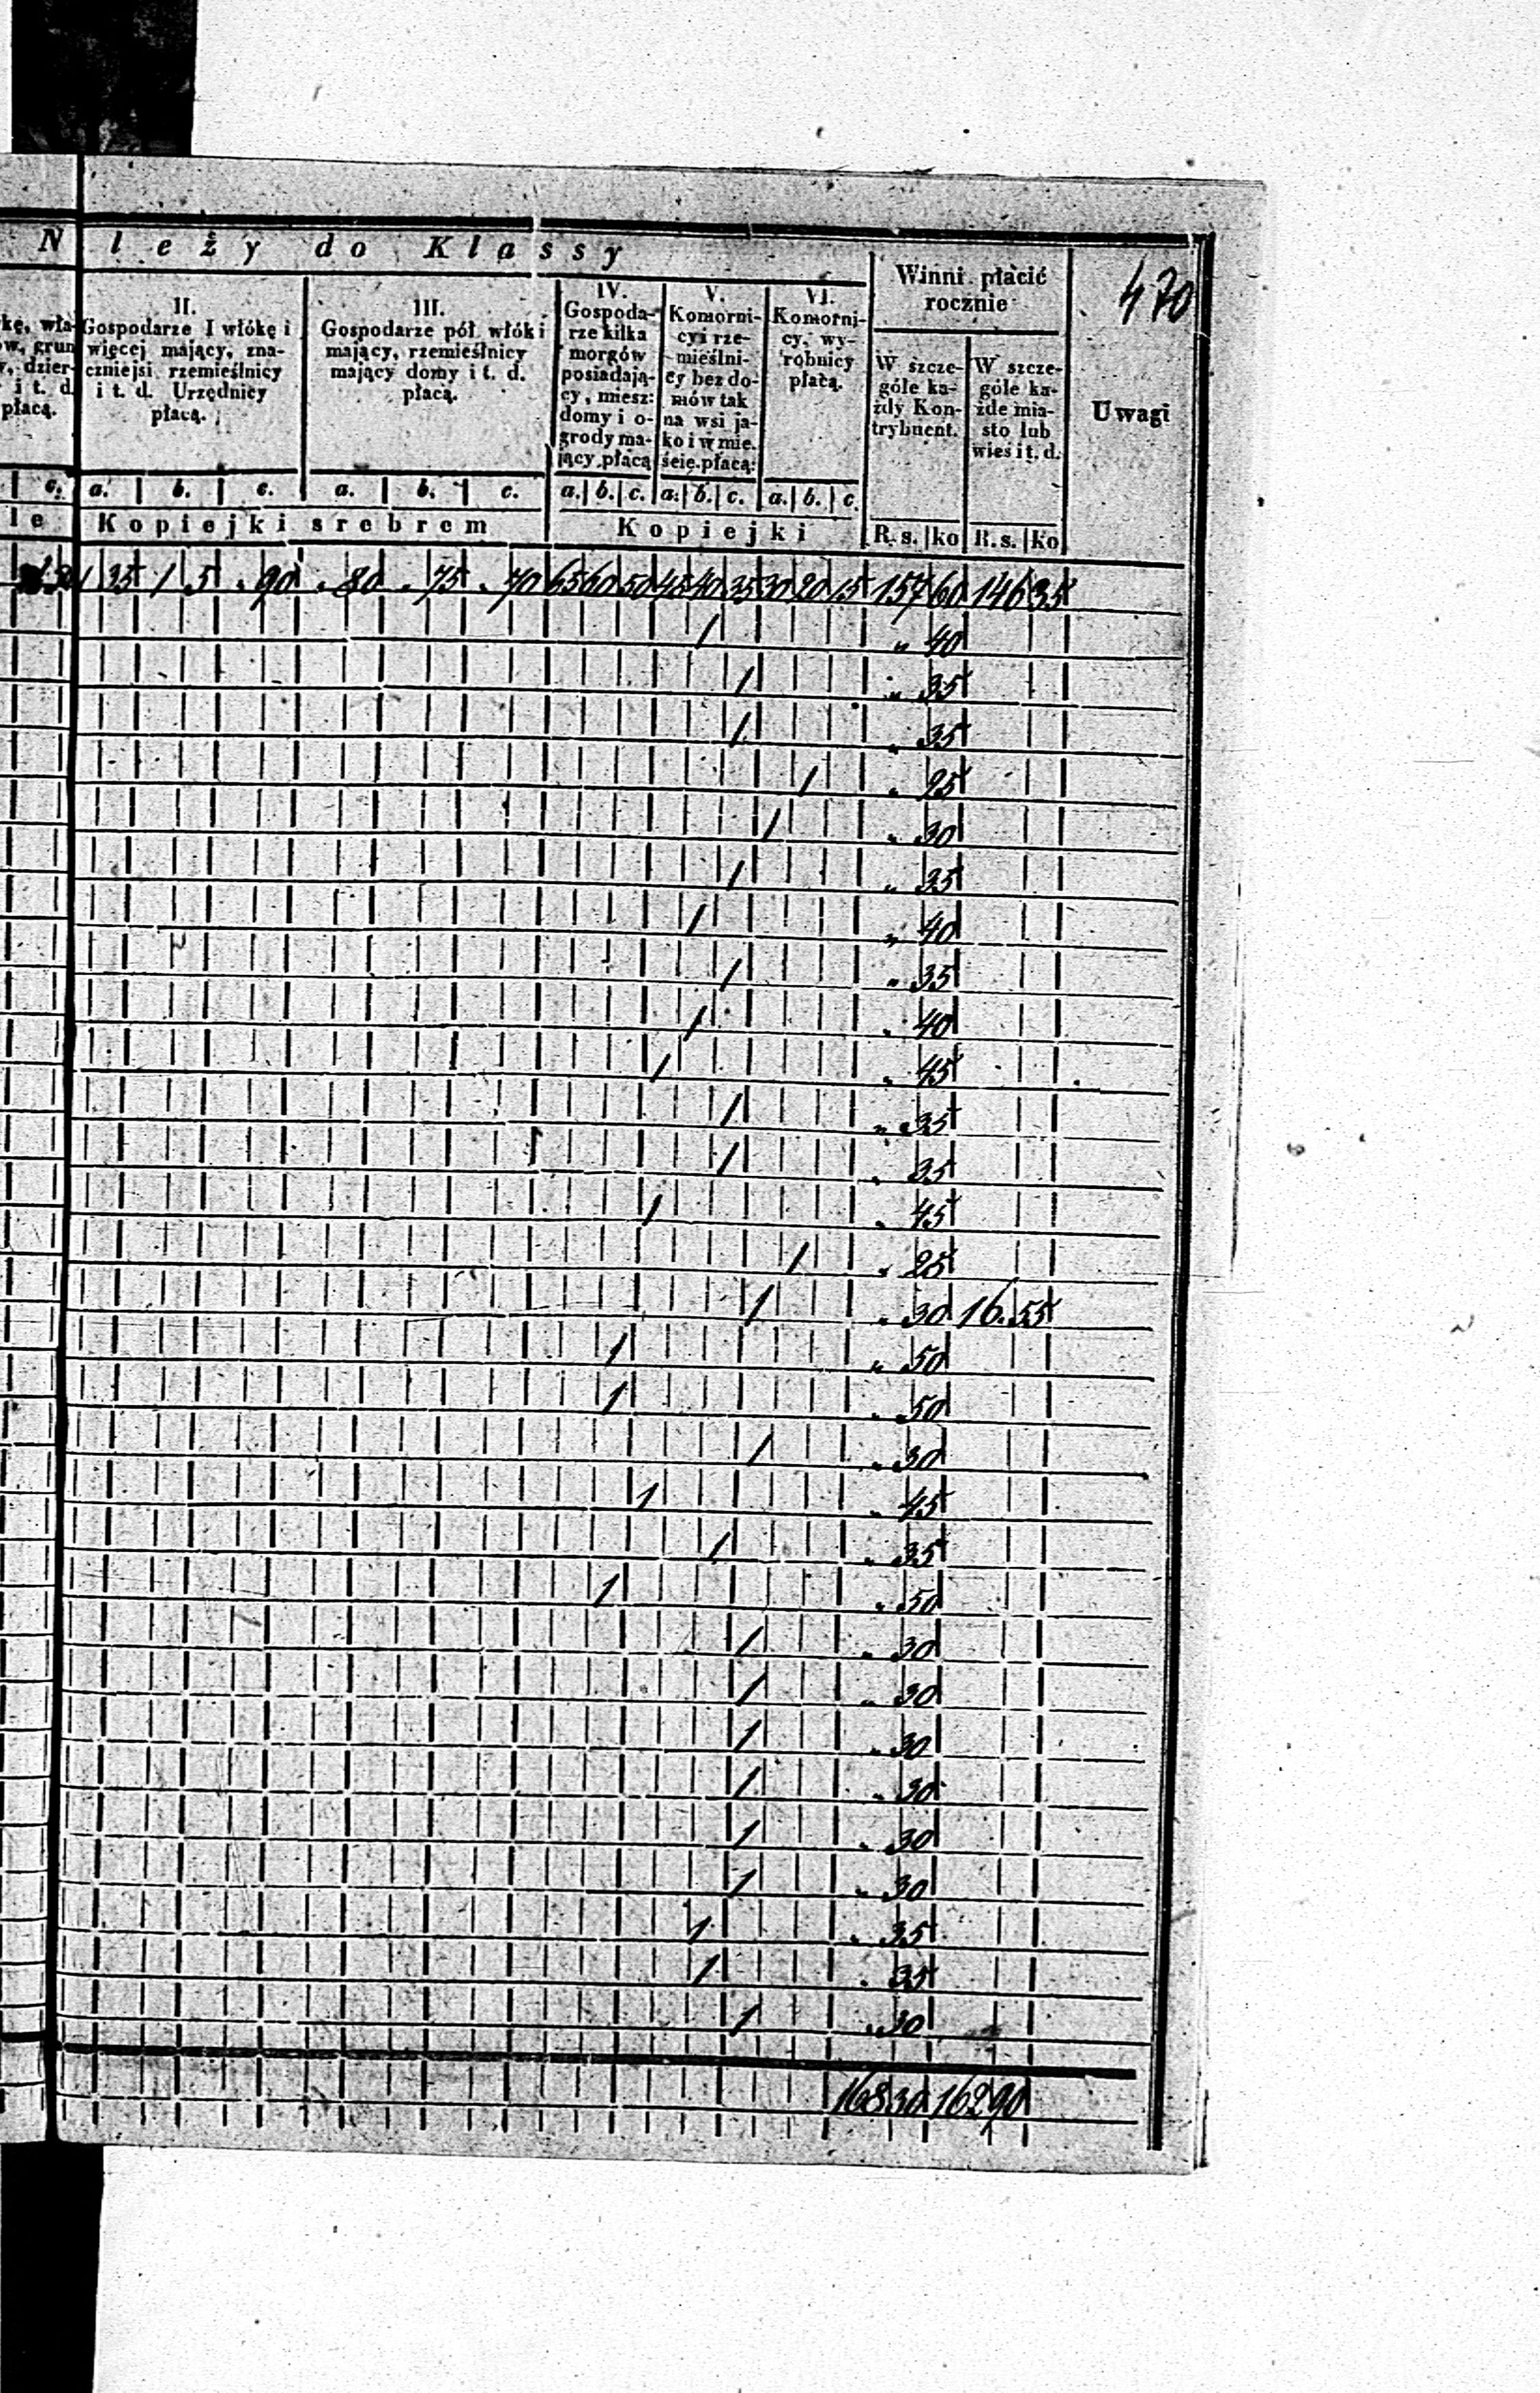 470
N leży do Klassy
Winni płacić
rocznie
Uwagi
kę, wła-
w, grun
, dzier-
i t. d.
płacą.
II.
Gospodarze I włókę i
więcej mający, zna-
czniejsi rzemieślnicy
i t. d. Urzędnicy
płacą.
III.
Gospodarze pół włóki
mający, rzemieślnicy
mający domy i t. d.
płacą.
IV.
Gospoda-
rze kilka
morgów
posiadają-
cy, miesz:
domy i o-
grody ma-
jący płacą
V.
Komorni-
cy i rze-
mieślni-
cy bez do-
mów tak
na wsi ja-
ko i w mie-
ście płacą:
VI.
Komorni-
cy, wy-
robnicy
płacą.
W szcze-
góle ka-
żdy Kon-
trybuent.
W szcze-
góle ka-
żde mia-
sto lub
wieś i t. d.
c. a. b. c. a. b. c. a. b. c. a. b. c. a. b. c.
le Kopiejki srebrem Kopiejki R. s. ko R. s. ko
1 35 1 5 . 90 . 80 . 75 . 70 65 60 50 45 40 35 30 20 15 157 60 146 35
1 " 40
1 " 35
1 " 35
1 " 25
1 " 30
1 " 35
1 " 40
1 " 35
1 " 40
1 " 45
1 " 35
1 " 35
1 " 45
1 " 25
1 " 30 16. 55
1 " 50
1 " 50
1 " 30
1 " 45
1 " 35
1 " 50
1 " 30
1 " 30
1 " 30
1 " 30
1 " 30
1 " 30
1 " 35
1 " 35
1 " 30
168 30 162 90